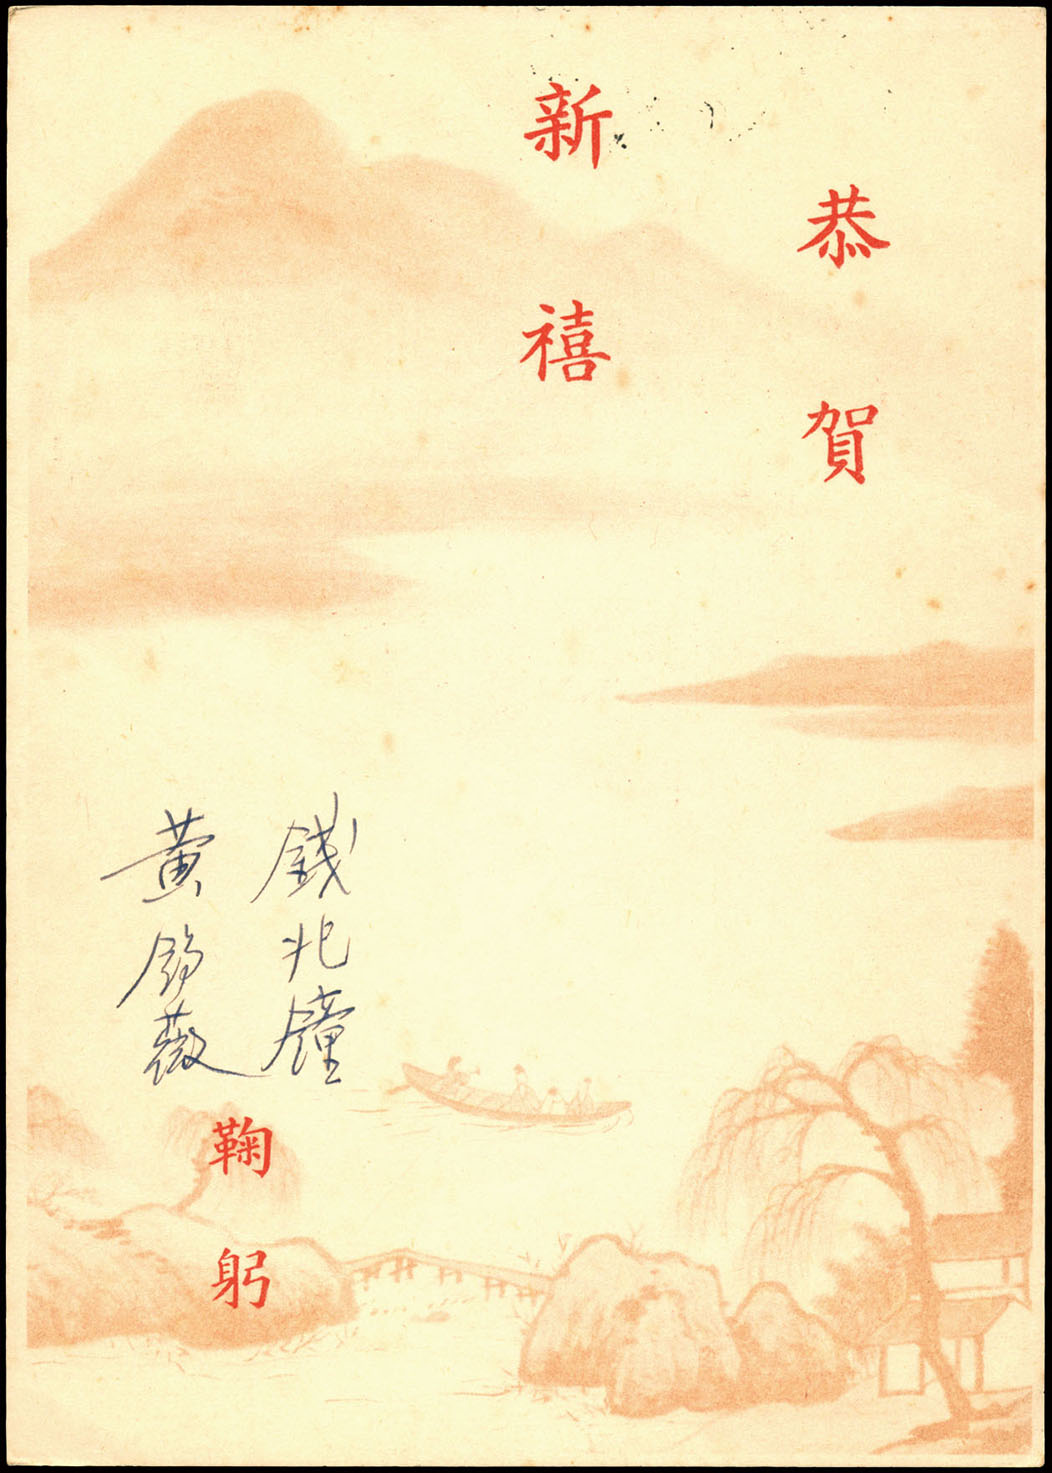 恭賀
新禧
錢兆鐘
黃鈞薇
鞠躬